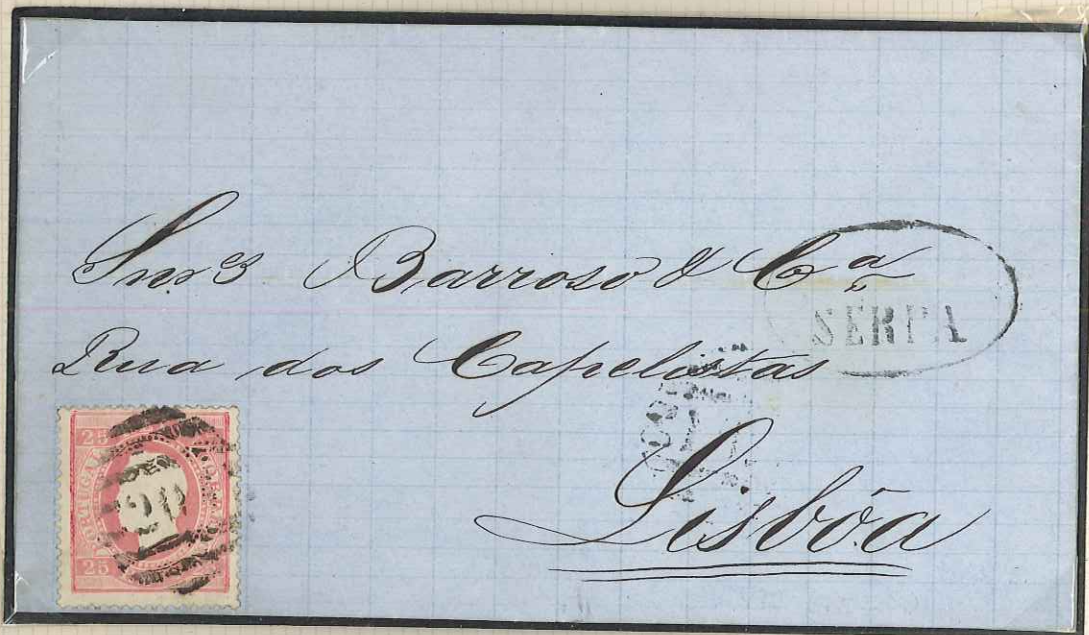 Snres Barroso & Cª
SERPA
Rua dos Capelistas
Lisbôa
25 25
PORTUGAL
25 25